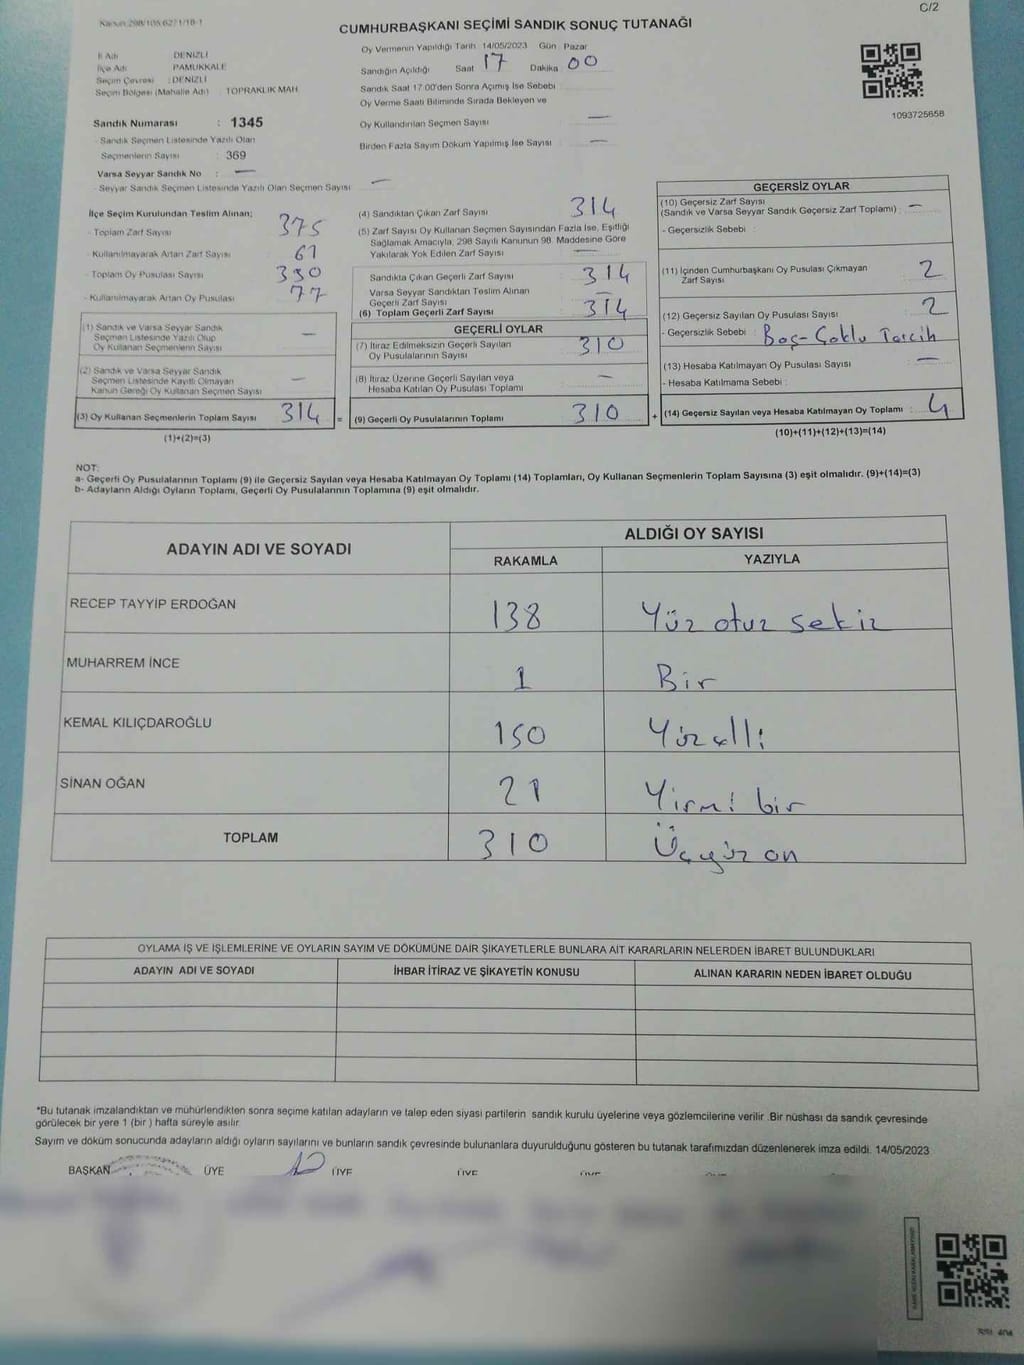 C/2
CUMHURBAŞKANI SEÇİMİ SANDIK SONUÇ TUTANAĞI
İl Adı : DENİZLİ
İlçe Adı : PAMUKKALE
Seçim Çevresi : DENİZLİ
Seçim Bölgesi (Mahalle Adı) : TOPRAKLIK MAH
Sandık Numarası : 1345
Sandık Seçmen Listesinde Yazılı Olan
Seçmenlerin Sayısı : 369
Varsa Seyyar Sandık No : —
Seyyar Sandık Seçmen Listesinde Yazılı Olan Seçmen Sayısı —
Oy Vermenin Yapıldığı Tarih 14/05/2023 Gün Pazar
Sandığın Açıldığı Saat 17 Dakika 00
Sandık Saat 17.00'den Sonra Açımış İse Sebebi
Oy Verme Saati Bitiminde Sırada Bekleyen ve
Oy Kullandırılan Seçmen Sayısı —
Birden Fazla Sayım Döküm Yapılmış İse Sayısı —
1093725658
İlçe Seçim Kurulundan Teslim Alınan;
- Toplam Zarf Sayısı 375
- Kullanılmayarak Artan Zarf Sayısı 61
- Toplam Oy Pusulası Sayısı 390
- Kullanılmayarak Artan Oy Pusulası 77
(1) Sandık ve Varsa Seyyar Sandık
Seçmen Listesinde Yazılı Olup
Oy Kullanan Seçmenlerin Sayısı —
(2) Sandık ve Varsa Seyyar Sandık
Seçmen Listesinde Kayıtlı Olmayan
Kanun Gereği Oy Kullanan Seçmen Sayısı —
(3) Oy Kullanan Seçmenlerin Toplam Sayısı 314 =
(1)+(2)=(3)
(4) Sandıktan Çıkan Zarf Sayısı 314
(5) Zarf Sayısı Oy Kullanan Seçmen Sayısından Fazla İse, Eşitliği
Sağlamak Amacıyla, 298 Sayılı Kanunun 98. Maddesine Göre
Yakılarak Yok Edilen Zarf Sayısı —
Sandıkta Çıkan Geçerli Zarf Sayısı 314
Varsa Seyyar Sandıktan Teslim Alınan
Geçerli Zarf Sayısı —
(6) Toplam Geçerli Zarf Sayısı 314
GEÇERLİ OYLAR
(7) İtiraz Edilmeksizin Geçerli Sayılan
Oy Pusulalarının Sayısı 310
(8) İtiraz Üzerine Geçerli Sayılan veya
Hesaba Katılan Oy Pusulası Toplamı —
(9) Geçerli Oy Pusulalarının Toplamı 310 +
GEÇERSİZ OYLAR
(10) Geçersiz Zarf Sayısı
(Sandık ve Varsa Seyyar Sandık Geçersiz Zarf Toplamı) : —
- Geçersizlik Sebebi :
(11) İçinden Cumhurbaşkanı Oy Pusulası Çıkmayan
Zarf Sayısı 2
(12) Geçersiz Sayılan Oy Pusulası Sayısı : 2
- Geçersizlik Sebebi : Boş-Çoklu Tercih
(13) Hesaba Katılmayan Oy Pusulası Sayısı : —
- Hesaba Katılmama Sebebi :
(14) Geçersiz Sayılan veya Hesaba Katılmayan Oy Toplamı : 4
(10)+(11)+(12)+(13)=(14)
NOT:
a- Geçerli Oy Pusulalarının Toplamı (9) ile Geçersiz Sayılan veya Hesaba Katılmayan Oy Toplamı (14) Toplamları, Oy Kullanan Seçmenlerin Toplam Sayısına (3) eşit olmalıdır. (9)+(14)=(3)
b- Adayların Aldığı Oyların Toplamı, Geçerli Oy Pusulalarının Toplamına (9) eşit olmalıdır.
ADAYIN ADI VE SOYADI ALDIĞI OY SAYISI
RAKAMLA YAZIYLA
RECEP TAYYİP ERDOĞAN 138 Yüz otuz sekiz
MUHARREM İNCE 1 Bir
KEMAL KILIÇDAROĞLU 150 Yüz elli
SİNAN OĞAN 21 Yirmi bir
TOPLAM 310 Üçyüz on
OYLAMA İŞ VE İŞLEMLERİNE VE OYLARIN SAYIM VE DÖKÜMÜNE DAİR ŞİKAYETLERLE BUNLARA AİT KARARLARIN NELERDEN İBARET BULUNDUKLARI
ADAYIN ADI VE SOYADI İHBAR İTİRAZ VE ŞİKAYETİN KONUSU ALINAN KARARIN NEDEN İBARET OLDUĞU
*Bu tutanak imzalandıktan ve mühürlendikten sonra seçime katılan adayların ve talep eden siyasi partilerin sandık kurulu üyelerine veya gözlemcilerine verilir .Bir nüshası da sandık çevresinde
görülecek bir yere 1 (bir ) hafta süreyle asılır
Sayım ve döküm sonucunda adayların aldığı oyların sayılarını ve bunların sandık çevresinde bulunanlara duyurulduğunu gösteren bu tutanak tarafımızdan düzenlenerek imza edildi. 14/05/2023
BAŞKAN ÜYE ÜYE ÜYE